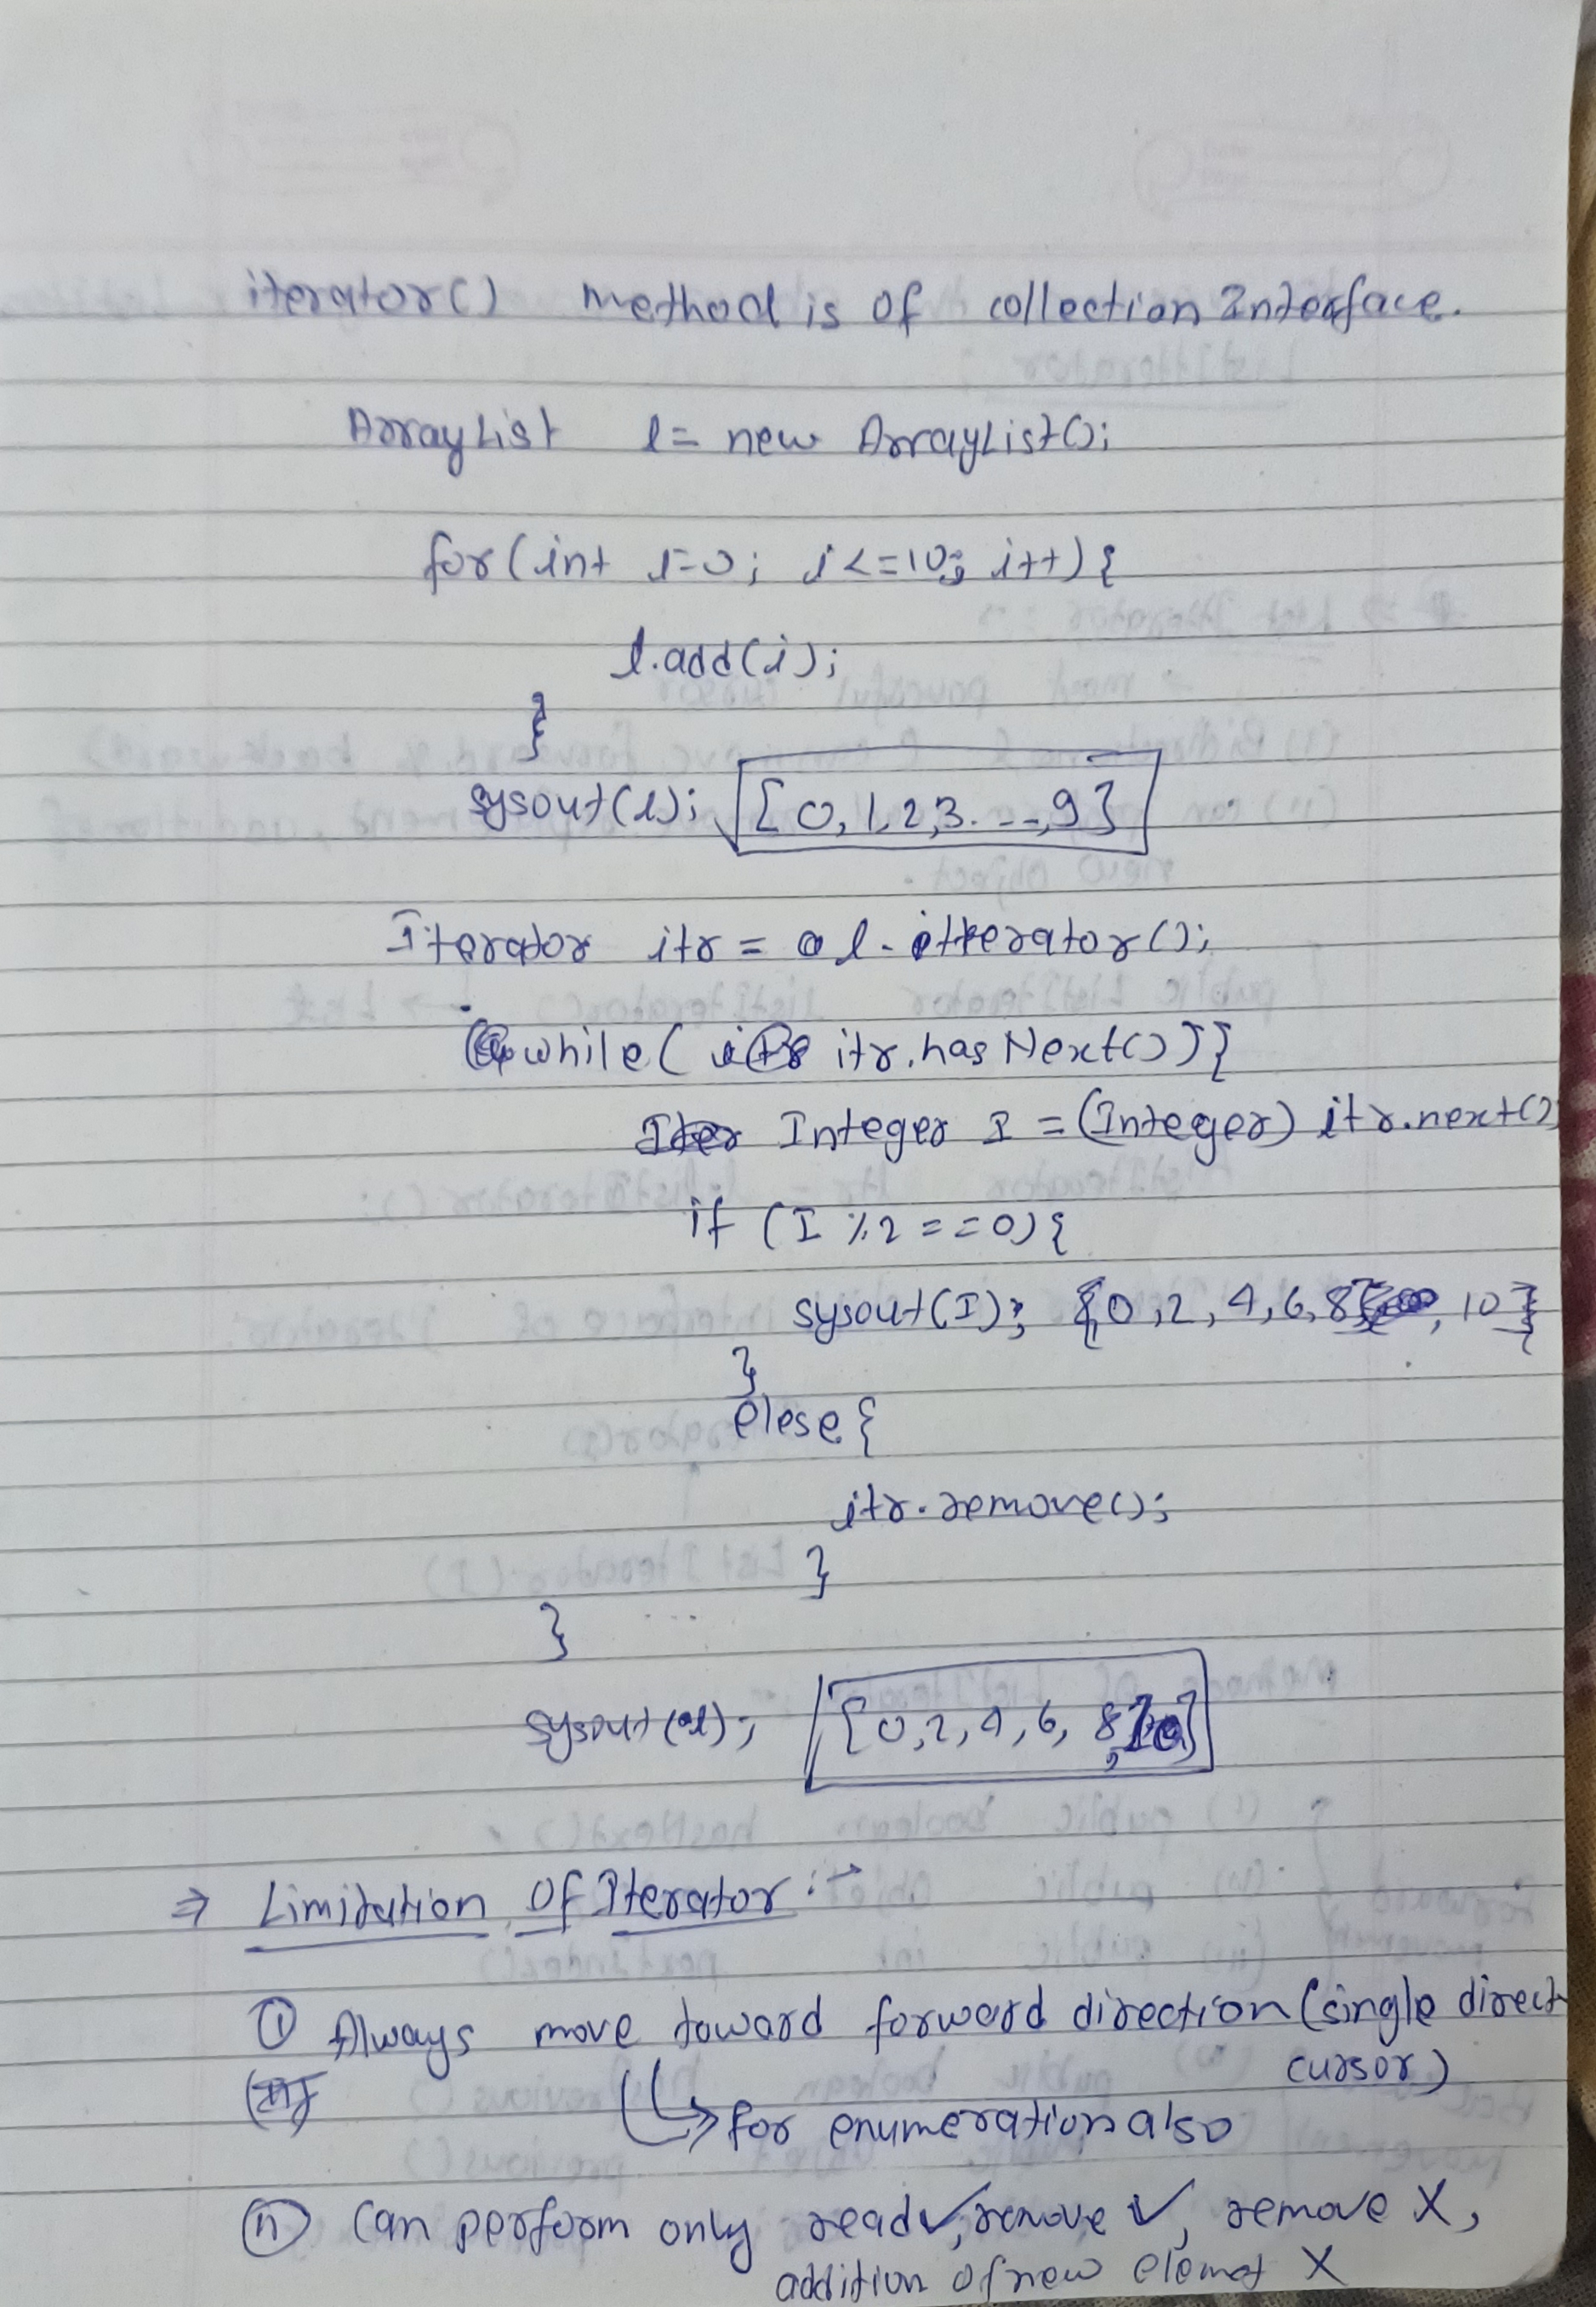 iterator() method is of collection Interface.
ArrayList l = new ArrayList();
for(int i=0; i<=10; i++){
l.add(i);
}
sysout(l); [0,1,2,3...,9}
Iterator itr = l.iterator();
while( itr.hasNext()){
Integer I = (Integer) itr.next()
if (I %2 ==0){
sysout(I); {0,2,4,6,8, 10}
}
elese{
itr.remove();
}
}
sysout(l); [0,2,4,6,8,10]
⇒ Limitation Of Iterator :→
① Always move toward forward direction (single direct
cursor)
↳ for enumeration also
ⓘⓘ Can perform only read ✓, remove ✓, remove X,
addition of new elemet X